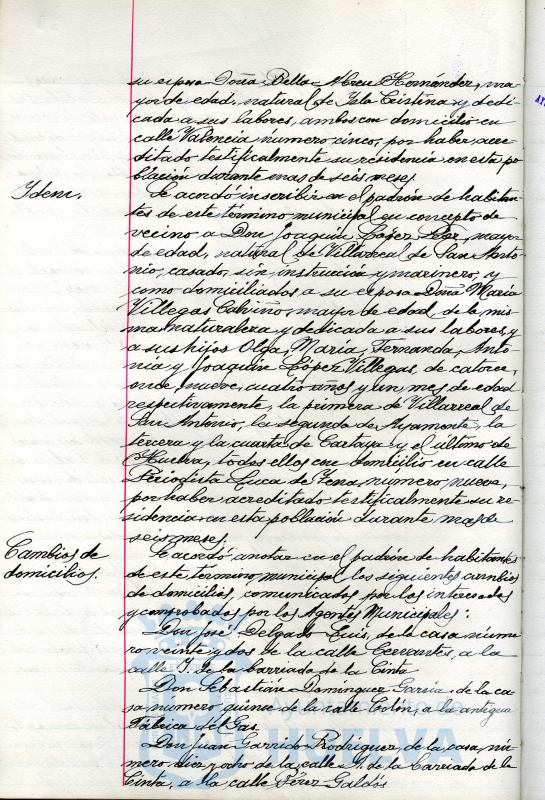 su esposa Doña Bella Abreu Hernández, ma-
yor de edad, natural de Isla Cristina y dedi-
cada a sus labores, ambos con domicilio en
calle Valencia número cinco, por haber acre-
ditado testificalmente su residencia en esta po-
blación durante mas de seis meses.
Idem.
Se acordó inscribir en el padrón de habitan-
tes de este termino municipal en concepto de
vecino a Don Joaquín López, mayor
de edad, natural de Villarreal de San Anto-
nio, casado, sin instrucción y marinero, y
como domiciliados a su esposa Doña María
Villegas Calviño, mayor de edad, de la mis-
ma naturaleza y dedicada a sus labores, y
a sus hijos Olga, María, Fernanda, Anto-
nia y Joaquín López Villegas, de catorce,
once, nueve, cuatro años y un mes de edad
respectivamente, la primera de Villarreal de
San Antonio, la segunda de Ayamonte, la
tercera y la cuarta de Cartaya y el ultimo de
Huelva, todos ellos con domicilio en calle
Periodista Luca de Tena, numero nueve,
por haber acreditado testificalmente su re-
sidencia en esta población durante mas de
seis meses.
Cambios de
domicilios.
Se acordó anotar en el padrón de habitantes
de este termino municipal los siguientes cambios
de domicilios, comunicados por los interesados
y comprobados por los Agentes Municipales:
Don José Delgado Luis, de la casa núme-
ro veinte y dos de la calle Cervantes, a la
calle J. de la barriada de la Cinta
Don Sebastián Domínguez García, de la ca-
sa número quince de la calle Colón, a la antigua
Fábrica del Gas.
Don Juan Garrido Rodríguez, de la casa nú-
mero diez y ocho de la calle de la barriada de la
Cinta, a la calle Pérez Galdós
HUELVA